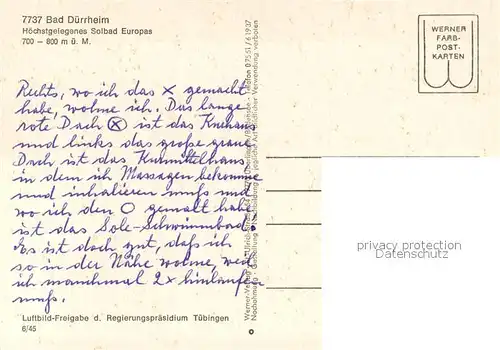 7737 Bad Dürrheim
Höchstgelegenes Solbad Europas
700 – 800 m ü. M.
Rechts, wo ich das x gemacht
habe, wohne ich. Das lange
rote Dach ⓧ ist das Kurhaus
und links das große graue
Dach ist das Kurmittelhaus
in dem ich Massagen bekomme
und inhalieren muß und
wo ich den O gemalt habe
ist das Sole-Schwimmbad.
Es ist doch gut, daß ich
so in der Nähe wohne, weil
ich manchmal 2x hinlaufen
muß.
Luftbild-Freigabe d. Regierungspräsidium Tübingen
6/45
WERNER
FARB-
POST-
KARTEN
privacy protection
Datenschutz